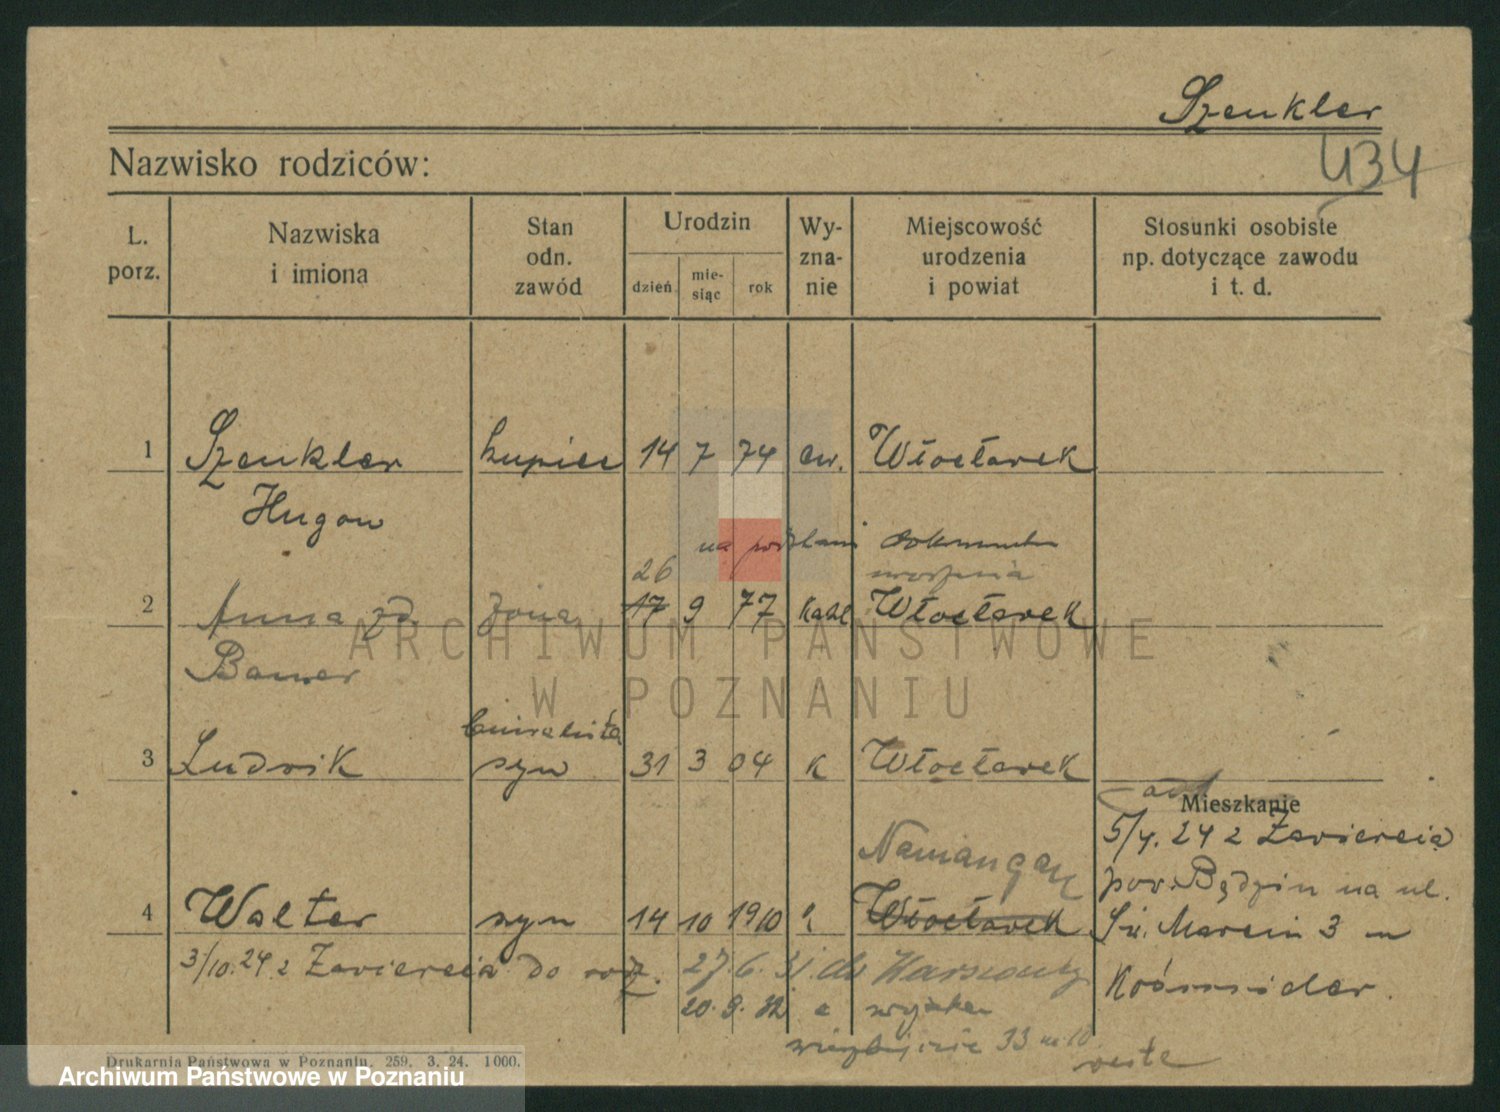 Szenkler
434
Nazwisko rodziców:
L. porz.
Nazwiska i imiona
Stan odn. zawód
Urodzin
dzień
mie-siąc
rok
Wy-zna-nie
Miejscowość urodzenia i powiat
Stosunki osobiste np. dotyczące zawodu i t. d.
1 Szenkler kupiec 14 7 74 ew. Włocławek
Hugon
na podstawie dokumentu
26
2 Anna zd. żona 17 9 77 Włocławek
Bauer
3 Ludwik syn 31 3 04 k Włocławek
Mieszkanie
5/4. 24 z Zawiercia
Namangan
pow. Będzin na ul.
4 Walter syn 14 10 1910 Włocławek
Św. Marcin 3 m
3/10. 24 z Zawiercia do rodz. 27. 6. 31. do Warszawy
20. 9. 32
33 m 10
Drukarnia Państwowa w Poznaniu. 259. 3. 24. 1000.
ARCHIWUM PAŃSTWOWE
W POZNANIU
Archiwum Państwowe w Poznaniu